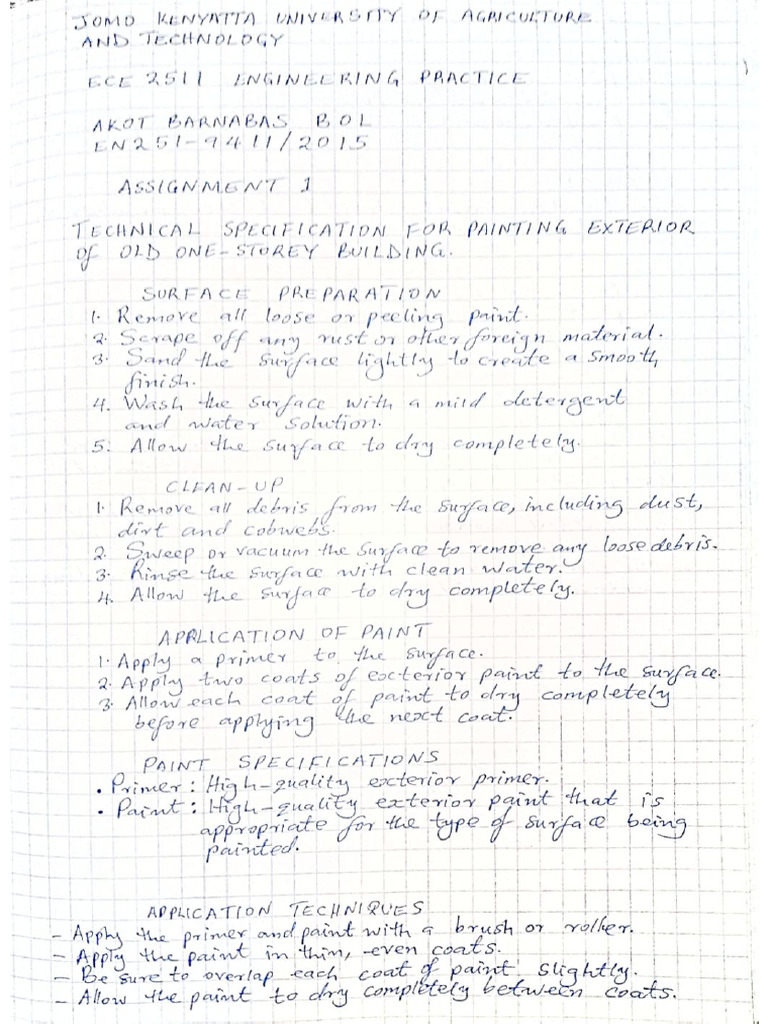 JOMO KENYATTA UNIVERSITY OF AGRICULTURE
AND TECHNOLOGY
ECE 2511 ENGINEERING PRACTICE
AKOT BARNABAS BOL
EN251-9411/2015
ASSIGNMENT 1
TECHNICAL SPECIFICATION FOR PAINTING EXTERIOR
of OLD ONE-STOREY BUILDING.
SURFACE PREPARATION
1. Remove all loose or peeling paint.
2. Scrape off any rust or other foreign material.
3. Sand the surface lightly to create a smooth
finish.
4. Wash the surface with a mild detergent
and water solution.
5. Allow the surface to dry completely.
CLEAN-UP
1. Remove all debris from the surface, including dust,
dirt and cobwebs.
2. Sweep or vacuum the surface to remove any loose debris.
3. Rinse the surface with clean water.
4. Allow the surface to dry completely.
APPLICATION OF PAINT
1. Apply a primer to the surface.
2. Apply two coats of exterior paint to the surface.
3. Allow each coat of paint to dry completely
before applying the next coat.
PAINT SPECIFICATIONS
• Primer: High-quality exterior primer.
• Paint: High-quality exterior paint that is
appropriate for the type of surface being
painted.
APPLICATION TECHNIQUES
- Apply the primer and paint with a brush or roller.
- Apply the paint in thin, even coats.
- Be sure to overlap each coat of paint slightly.
- Allow the paint to dry completely between coats.